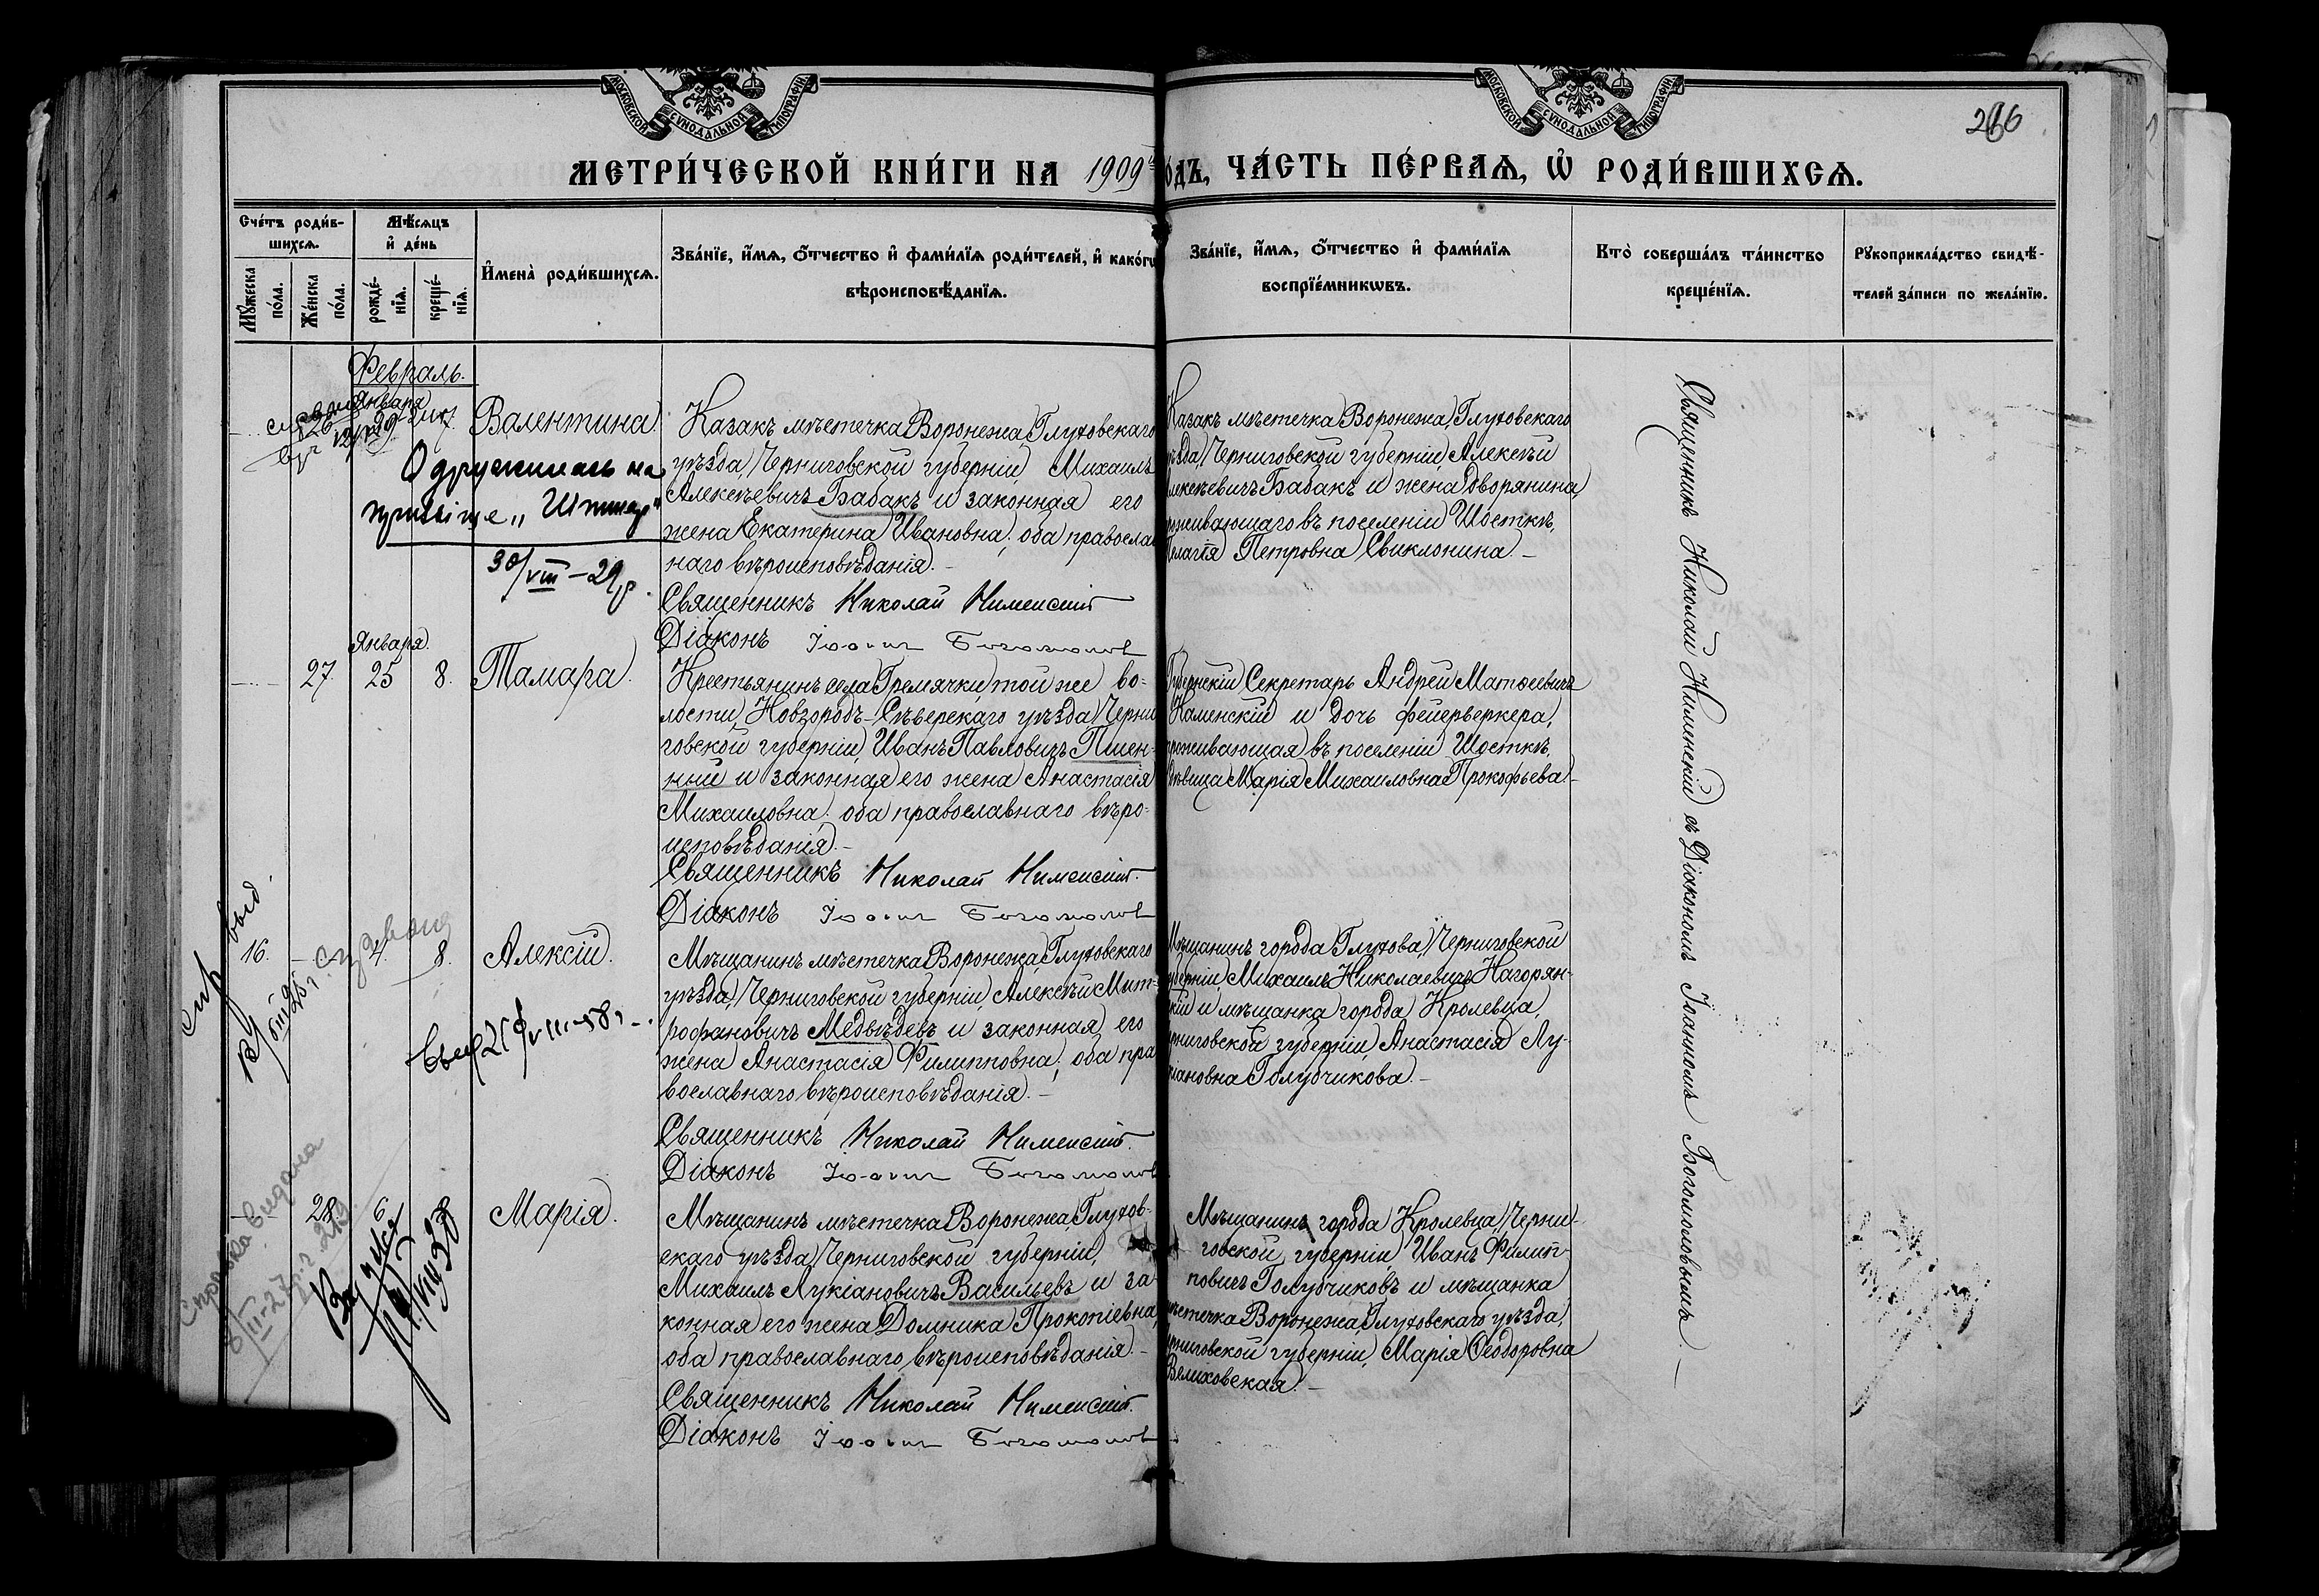 МОСКОВСКОЙ СѴНОДАЛЬНОЙ ТИПОГРАФІИ
МОСКОВСКОЙ СѴНОДАЛЬНОЙ ТИПОГРАФІИ
286
МЕТРИ́ЧЕСКОЙ КНИ́ГИ НА 1909
ОДЪ, ЧА́СТЬ ПЕ́РВАѦ, Ѡ҆ РОДИ́ВШИХСѦ.
Сче́тъ роди́в-
шихсѧ.
Мꙋ́жеска
по́ла.
Же́нска
по́ла.
Мѣ́сѧцъ
и҆ де́нь
рожде́-
нїѧ.
креще́-
нїѧ.
И҆мена̀ роди́вшихсѧ.
Зва́нїе, и҆́мѧ, ѻ҆́тчество и҆ фами́лїѧ роди́телей, и҆ како́гѡ
вѣроисповѣ́данїѧ.
Зва́нїе, и҆́мѧ, ѻ҆́тчество и҆ фами́лїѧ
воспрїе́мникѡвъ.
Кто̀ соверша́лъ та́инство
креще́нїѧ.
Рꙋкоприкла́дство свидѣ́-
телей за́писи по жела́нїю.
Февраль.
Января
26 29
Валентина
Казакъ мѣстечка Воронежа, Глуховскаго
уѣзда, Черниговской губерніи, Михаилъ
Алексѣевичъ Бабакъ и законная его
жена Екатерина Ивановна; оба православ
наго вѣроисповѣданія. –
Священникъ Николай Нименскій
Діаконъ Іоаннъ Богомоловъ
Одружилась на
прізвіще „Шпинер"
30/VIII – 29 р.
Казакъ мѣстечка Воронежа, Глуховскаго
ѣзда, Черниговской губерніи, Алексѣй
лексѣевичъ Бабакъ и жена дворянина,
роживающаго въ поселеніи Шосткѣ,
елагія Петровна Свиклонина –
Января.
27. 25 8. Тамара.
Крестьянинъ села Гремячки той же во-
лости, Новгородъ-Сѣверскаго уѣзда, Черни
говской губерніи, Иванъ Павловичъ Пшен-
ный и законная его жена Анастасія
Михаиловна; оба православнаго вѣро-
исповѣданія. –
Священникъ Николай Нименскій.
Діаконъ Іоаннъ Богомоловъ
Губернскій Секретарь Андрей Матѳеевичъ
Каменскій и дочь фейерверкера,
проживающая въ поселеніи Шосткѣ,
дѣвица Марія Михаиловна Прокофьева. –
16. 4. 8. Алексій.
Мѣщанинъ мѣстечка Воронежа, Глуховскаго
уѣзда, Черниговской губерніи, Алексѣй Мит-
рофановичъ Медвѣдевъ и законная его
жена Анастасія Филипповна; оба пра
вославнаго вѣроисповѣданія. –
Священникъ Николай Нименскій.
Діаконъ Іоаннъ Богомоловъ
Мѣщанинъ города Глухова, Черниговской
губерніи, Михаилъ Николаевичъ Нагорян-
скій и мѣщанка города Кролевца,
рниговской губерніи, Анастасія Лу-
кіановна Голубчикова. –
Справка видана
28 6 8 Марія.
Мѣщанинъ мѣстечка Воронежа, Глухов-
скаго уѣзда, Черниговской губерніи,
Михаилъ Лукіановичъ Васильевъ и за-
конная его жена Домника Прокопіевна;
оба православнаго вѣроисповѣданія. –
Священникъ Николай Нименскій.
Діаконъ Іоаннъ Богомоловъ
Мѣщанинъ города Кролевца, Черни-
говской губерніи, Иванъ Филип-
повичъ Голубчиковъ и мѣщанка
мѣстечка Воронежа, Глуховскаго уѣзда,
рниговской губерніи, Марія Ѳеодоровна
Велиховская. –
Священникъ Николай Нименскій съ Діакономъ Іоанномъ Богомоловымъ. –